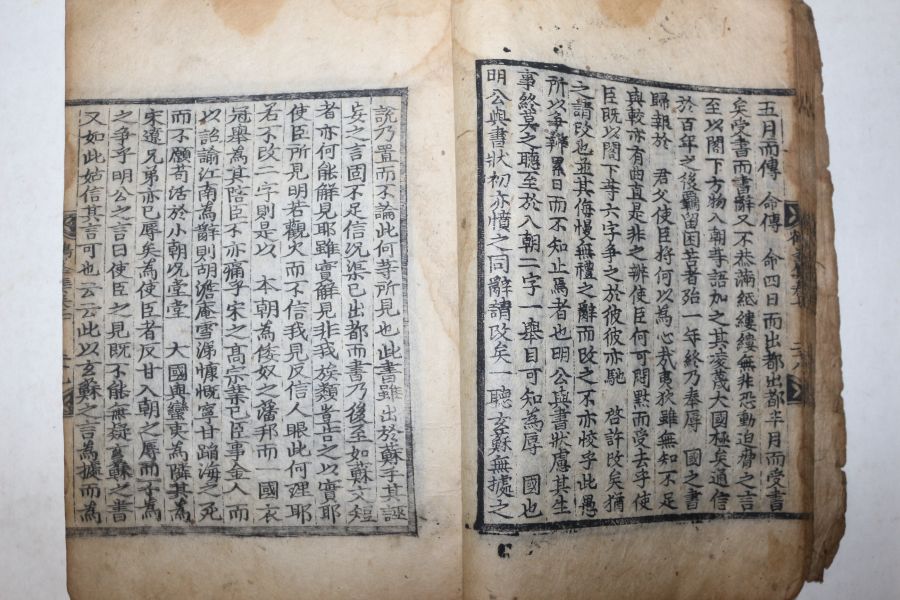 五月而傳 命傳 命四日而出都出都半月而受書
矣受書而書辭又不恭滿紙縷縷無非恐動迫脅之言
至以閤下方物入朝等語加之其凌蔑大國極矣通信
於百年之後羈留困苦者殆一年終乃奉辱 國之書
歸報於 君父使臣將何以爲心哉夷狄雖無知不足
與較亦有曲直是非之辨使臣何可問默而受去乎使
臣旣以閤下等六字爭之於彼彼亦馳 啓許改矣猶
之請改也並其侮慢無禮之辭而改之不亦快乎此愚
所以爭辨累日而不知止焉者也明公與書狀慮其生
事終莫之聽至於入朝二字一擧目可知爲辱 國也
明公與書狀初亦憤之同辭請改矣一聽玄蘇無據之
說乃置而不論此何等所見也此書雖出於蘇手其誣
妄之言固不足信況渠已出都而書乃後至如蘇文短
者亦何能解見耶雖實解見非我族類豈告之以實耶
使臣所見明若觀火而不信我見反信人眼此何理耶
若不改二字則是以 本朝爲倭奴之藩邦而一國衣
冠擧爲其陪臣不亦痛乎宋之高宗業已臣事金人而
以詔諭江南爲辭則胡澹庵雪涕慷慨寧甘蹈海之死
而不願苟活於小朝況堂堂 大國與蠻東爲隣其爲
宋遼兄弟亦已辱矣爲使臣者反甘入朝之辱而不爲
之爭乎明公之言曰使臣之見旣不能無疑玄蘇之書
又如此姑信其言可也云云此以玄蘇之言爲據而爲